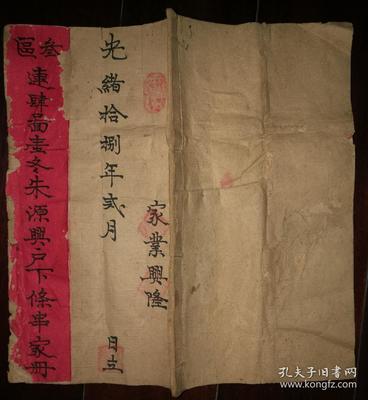 家業興隆
光緒拾捌年弍月
日立
叁區
連肆啚壹冬朱源興户下條串家册
孔夫子旧书网
www.kongfz.com